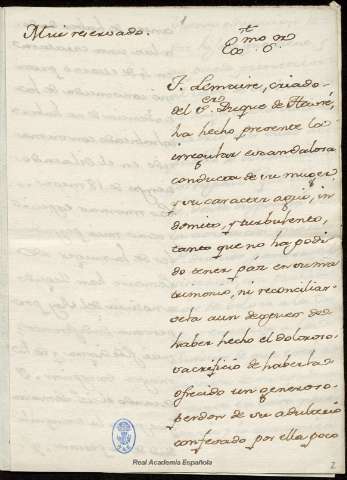 Mui reservado.
Exmo. Sr.
J. Lemaire, criado
del Sr. Duque de Havré,
ha hecho presente la
irregular escandalosa
conducta de su muger
y su caracter aqui, in
domito, y turbulento,
tanto que no ha podi
do tener páz en su ma
trimonio, ni reconciliar
sela aun despues de
haber hecho el doloroso
sacrificio de haberla
ofrecido un generoso
perdon de su adulterio
confesado por ella poco
Real Academia Española
2